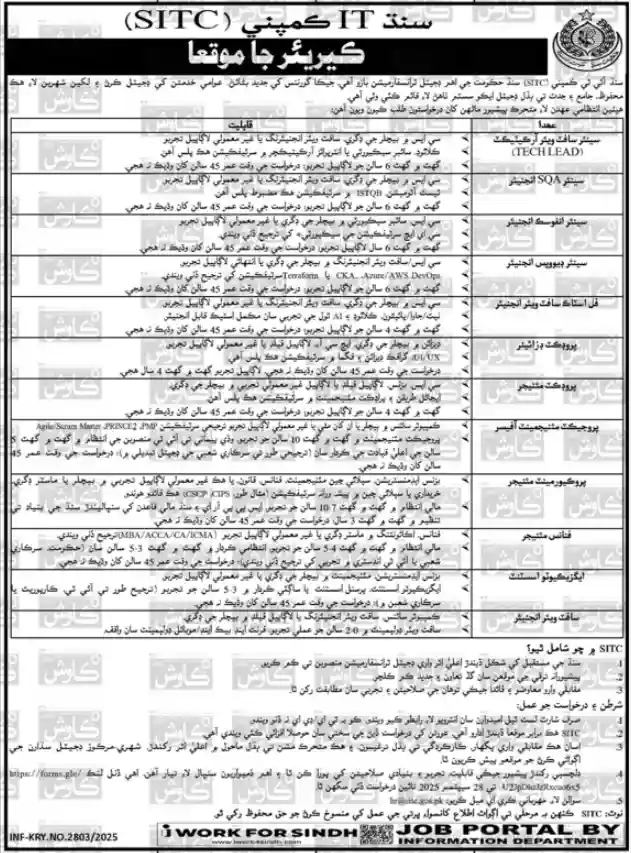 سنڌ IT ڪمپني (SITC)
ڪيريئر جا موقعا
سنڌ آئي ٽي ڪمپني (SITC) سنڌ حڪومت جي اهم ڊجيٽل ٽرانسفارميشن بازو آهي، جيڪا گورننس کي جديد بڻائڻ، عوامي خدمتن کي ڊجيٽل ڪرڻ ۽ لکين شهرين لاءِ هڪ
محفوظ، جامع ۽ جدت تي ٻڌل ڊجيٽل ايڪو سسٽم ٺاهڻ لاءِ قائم ڪئي وئي آهي.
هيٺين انتظامي عهدن لاءِ متحرڪ پيشيور ماڻهن کان درخواستون طلب ڪيون ويون آهن:
عهدا
قابليت
سينئر سافٽ ويئر آرڪيٽيڪٽ (TECH LEAD)
سي ايس ۾ بيچلر جي ڊگري، سافٽ ويئر انجنيئرنگ يا غير معمولي لاڳاپيل تجربو
ڪلائوڊ، سائبر سيڪيورٽي يا انٽرپرائز آرڪيٽيڪچر ۾ سرٽيفڪيشن هڪ پلس آهن.
گهٽ ۾ گهٽ 6 سالن جو لاڳاپيل تجربو: درخواست جي وقت عمر 45 سالن کان وڌيڪ نہ هجي.
سينئر SQA انجنيئر
سي ايس ۾ بيچلر جي ڊگري، سافٽ ويئر انجنيئرنگ يا غير معمولي لاڳاپيل تجربو.
ٽيسٽ آٽوميشن، ISTQB ۾ سرٽيفڪيشن هڪ مضبوط پلس آهن.
گهٽ ۾ گهٽ 6 سالن جو لاڳاپيل تجربو: درخواست جي وقت عمر 45 سالن کان وڌيڪ نہ هجي.
سينئر انفوسڪ انجنيئر
سي ايس، سائبر سيڪيورٽي ۾ بيچلر جي ڊگري يا غير معمولي لاڳاپيل تجربو
سي اي ايڇ سرٽيفڪيشن جي سيڪيورٽي+ کي ترجيح ڏني ويندي.
گهٽ ۾ گهٽ 6 سال لاڳاپيل تجربو: درخواست جي وقت عمر 45 سالن کان وڌيڪ نہ هجي.
سينئر ڊيووپس انجنيئر
سي ايس/سافٽ ويئر انجنيئرنگ ۾ بيچلر جي ڊگري يا انتهائي لاڳاپيل تجربو
CKA، Azure/AWS DevOps يا Terraform سرٽيفڪيشن کي ترجيح ڏني ويندي.
گهٽ ۾ گهٽ 6 سالن جو لاڳاپيل تجربو: درخواست جي وقت عمر 45 سالن کان وڌيڪ نہ هجي.
فل اسٽاڪ سافٽ ويئر انجنيئر
سي ايس ۾ بيچلر جي ڊگري، سافٽ ويئر انجنيئرنگ يا غير معمولي لاڳاپيل تجربو.
نيٽ/جاوا/پائيٿون، ڪلائوڊ ۽ AI ٽول جي تجربي سان مڪمل اسٽيڪ قابل انجنيئر
گهٽ ۾ گهٽ 4 سالن جو لاڳاپيل تجربو: درخواست جي وقت عمر 45 سالن کان وڌيڪ نہ هجي.
پروڊڪٽ ڊزائينر
ڊيزائن ۾ بيچلر جي ڊگري، ايڇ سي آءِ، لاڳاپيل فيلڊ يا غير معمولي لاڳاپيل تجربو.
UI/UX، گرافڪ ڊيزائن ۽ فگما ۾ سرٽيفڪيشن هڪ پلس آهي.
درخواست جي وقت عمر 45 سالن کان وڌيڪ نہ هجي. لاڳاپيل تجربو گهٽ ۾ گهٽ 4 سال هجي.
پروڊڪٽ مئنيجر
سي ايس، بزنس، لاڳاپيل فيلڊ يا لاڳاپيل غير معمولي تجربي ۾ بيچلر جي ڊگري.
ايجائل طريقن ۾ پراڊڪٽ مئنيجمينٽ ۾ سرٽيفڪيشن هڪ پلس آهن.
گهٽ ۾ گهٽ 4 سالن جو لاڳاپيل تجربو: درخواست جي وقت عمر 45 سالن کان وڌيڪ نہ هجي.
پروجيڪٽ مئنيجمينٽ آفيسر
ڪمپيوٽر سائنس ۾ بيچلر يا ان کان مٿي يا غير معمولي لاڳاپيل تجربو ترجيحي سرٽيفڪيشن Agile/Scrum Master ,PRINCE2 ,PMP
پروجيڪٽ مئنيجمينٽ ۾ گهٽ ۾ گهٽ 10 سالن جو تجربو، وڏي پيماني تي آئي ٽي منصوبن جي انتظام ۾ گهٽ ۾ گهٽ 5
سالن جي اعليٰ قيادت جي ڪردار سان (ترجيحي طور تي سرڪاري شعبي جي ڊجيٽل تبديلي ۾): درخواست جي وقت عمر 45
سالن کان وڌيڪ نہ هجي.
پروڪيورمينٽ مئنيجر
بزنس ايڊمنسٽريشن، سپلائي چين مئنيجمينٽ، فنانس، قانون، يا هڪ غير معمولي لاڳاپيل تجربي ۾ بيچلر يا ماسٽر ڊگري.
خريداري يا سپلائي چين ۾ پيشہ ورانہ سرٽيفڪيشن (مثال طور، CIPS، CSCP) هڪ فائدو هوندو.
مالي انتظام ۾ گهٽ ۾ گهٽ 7-10 سالن جو تجربو، ايس پي پي آر اي ۽ سنڌ مالي قاعدن کي سنڀاليندڙ سنڌ جي بنياد تي
تنظيم ۾ گهٽ ۾ گهٽ 3 سال، درخواست جي وقت عمر 45 سالن کان وڌيڪ نہ هجي.
فنانس مئنيجر
فنانس، اڪائونٽنگ ۾ ماسٽر ڊگري يا غير معمولي لاڳاپيل تجربو (MBA/ACCA/CA/ICMA ترجيح ڏني ويندي).
مالي انتظام ۾ گهٽ ۾ گهٽ 4-5 سالن جو تجربو، انتظامي ڪردار ۾ گهٽ ۾ گهٽ 3-5 سالن سان (حڪومت، سرڪاري
شعبي يا آئي ٽي انڊسٽري ۾ تجربي کي ترجيح ڏني ويندي): درخواست جي وقت عمر 45 سالن کان وڌيڪ نہ هجي.
ايگزيڪيوٽو اسسٽنٽ
بزنس ايڊمنسٽريشن، مئنيجمينٽ ۾ بيچلر جي ڊگري يا غير معمولي لاڳاپيل تجربو.
ايگزيڪيوٽو اسسٽنٽ، پرسنل اسسٽنٽ يا ساڳئي ڪردار ۾ 3-5 سالن جو تجربو (ترجيحي طور تي آئي ٽي ڪارپوريٽ يا
سرڪاري شعبن ۾): درخواست جي وقت عمر 45 سالن کان وڌيڪ نہ هجي.
سافٽ ويئر انجنيئر
ڪمپيوٽر سائنس، سافٽ ويئر انجنيئرنگ يا لاڳاپيل فيلڊ ۾ بيچلر جي ڊگري.
سافٽ ويئر ڊولپمينٽ ۾ 0-2 سالن جو عملي تجربو، فرنٽ اينڊ/بيڪ اينڊ/موبائل ڊولپمينٽ سان واقف.
SITC ۾ ڇو شامل ٿيو؟
1. سنڌ جي مستقبل کي شڪل ڏيندڙ اعليٰ اثر واري ڊجيٽل ٽرانسفارميشن منصوبن تي ڪم ڪريو.
2. پيشيورانہ ترقي جي موقعن سان گڏ تعاون ۽ جديد ڪم ڪلچر.
3. مقابلي وارو معاوضو ۽ فائدا جيڪي توهان جي صلاحيتن ۽ تجربي سان مطابقت رکن ٿا.
شرطن ۽ درخواست جو عمل:
1. صرف شارٽ لسٽ ٿيل اميدوارن سان انٽرويو لاءِ رابطو ڪيو ويندو، ڪو بہ ٽي اي ڊي اي نہ ڏنو ويندو.
2. SITC هڪ برابر موقعا ڏيندڙ ادارو آهي. عورتن کي درخواست ڏيڻ جي سختي سان حوصلا افزائي ڪئي ويندي آهي.
3. اسان هڪ مقابلي واري پگهار، ڪارڪردگي تي ٻڌل ترغيبون، ۽ هڪ متحرڪ مشن تي ٻڌل ماحول ۾ اعليٰ اثر رکندڙ، شهري-مرڪوز ڊجيٽل سڌارن جي
اڳواڻي ڪرڻ جو موقعو پيش ڪريون ٿا.
4. دلچسپي رکندڙ پيشيور جيڪي قابليت، تجربو ۽ بنيادي صلاحيتن کي پورا ڪن ٿا ۽ اهم ذميواريون سنڀالڻ لاءِ تيار آهن اهي ڏنل لنڪ https://forms.gle/
تي 28 سيپٽمبر 2025 تائين درخواست ڏئي سگهن ٿا.
5. سوالن لاءِ مهرباني ڪري اي ميل ڪريو: hr@sitc.gos.pk
نوٽ: SITC ڪنهن بہ مرحلي تي اڳواٽ اطلاع کانسواءِ ڀرتي جي عمل کي منسوخ ڪرڻ جو حق محفوظ رکي ٿو.
INF-KRY.NO.2803/2025
I WORK FOR SINDH
www.iwork4sindh.com
JOB PORTAL BY
INFORMATION DEPARTMENT